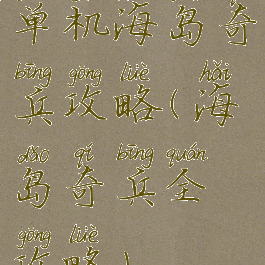 单机海岛奇
bīng gōng lüè hǎi
兵攻略(海
dǎo qí bīng quán
岛奇兵全
gōng lüè
攻略)